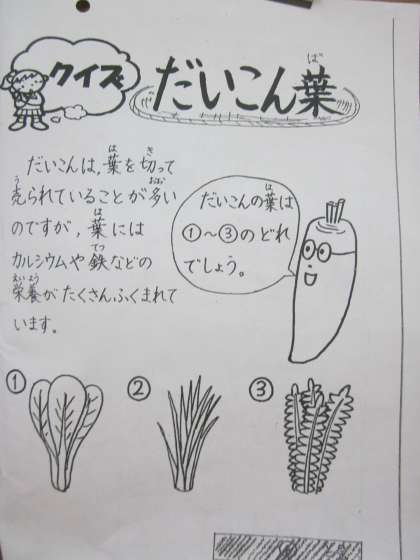 クイズ
だいこん葉
ば
だいこんは、葉を切って
は
き
売られていることが多い
う
おお
のですが、葉には
は
カルシウムや鉄などの
てつ
栄養がたくさんふくまれて
えいよう
います。
だいこんの葉は
は
①～③のどれ
でしょう。
①
②
③